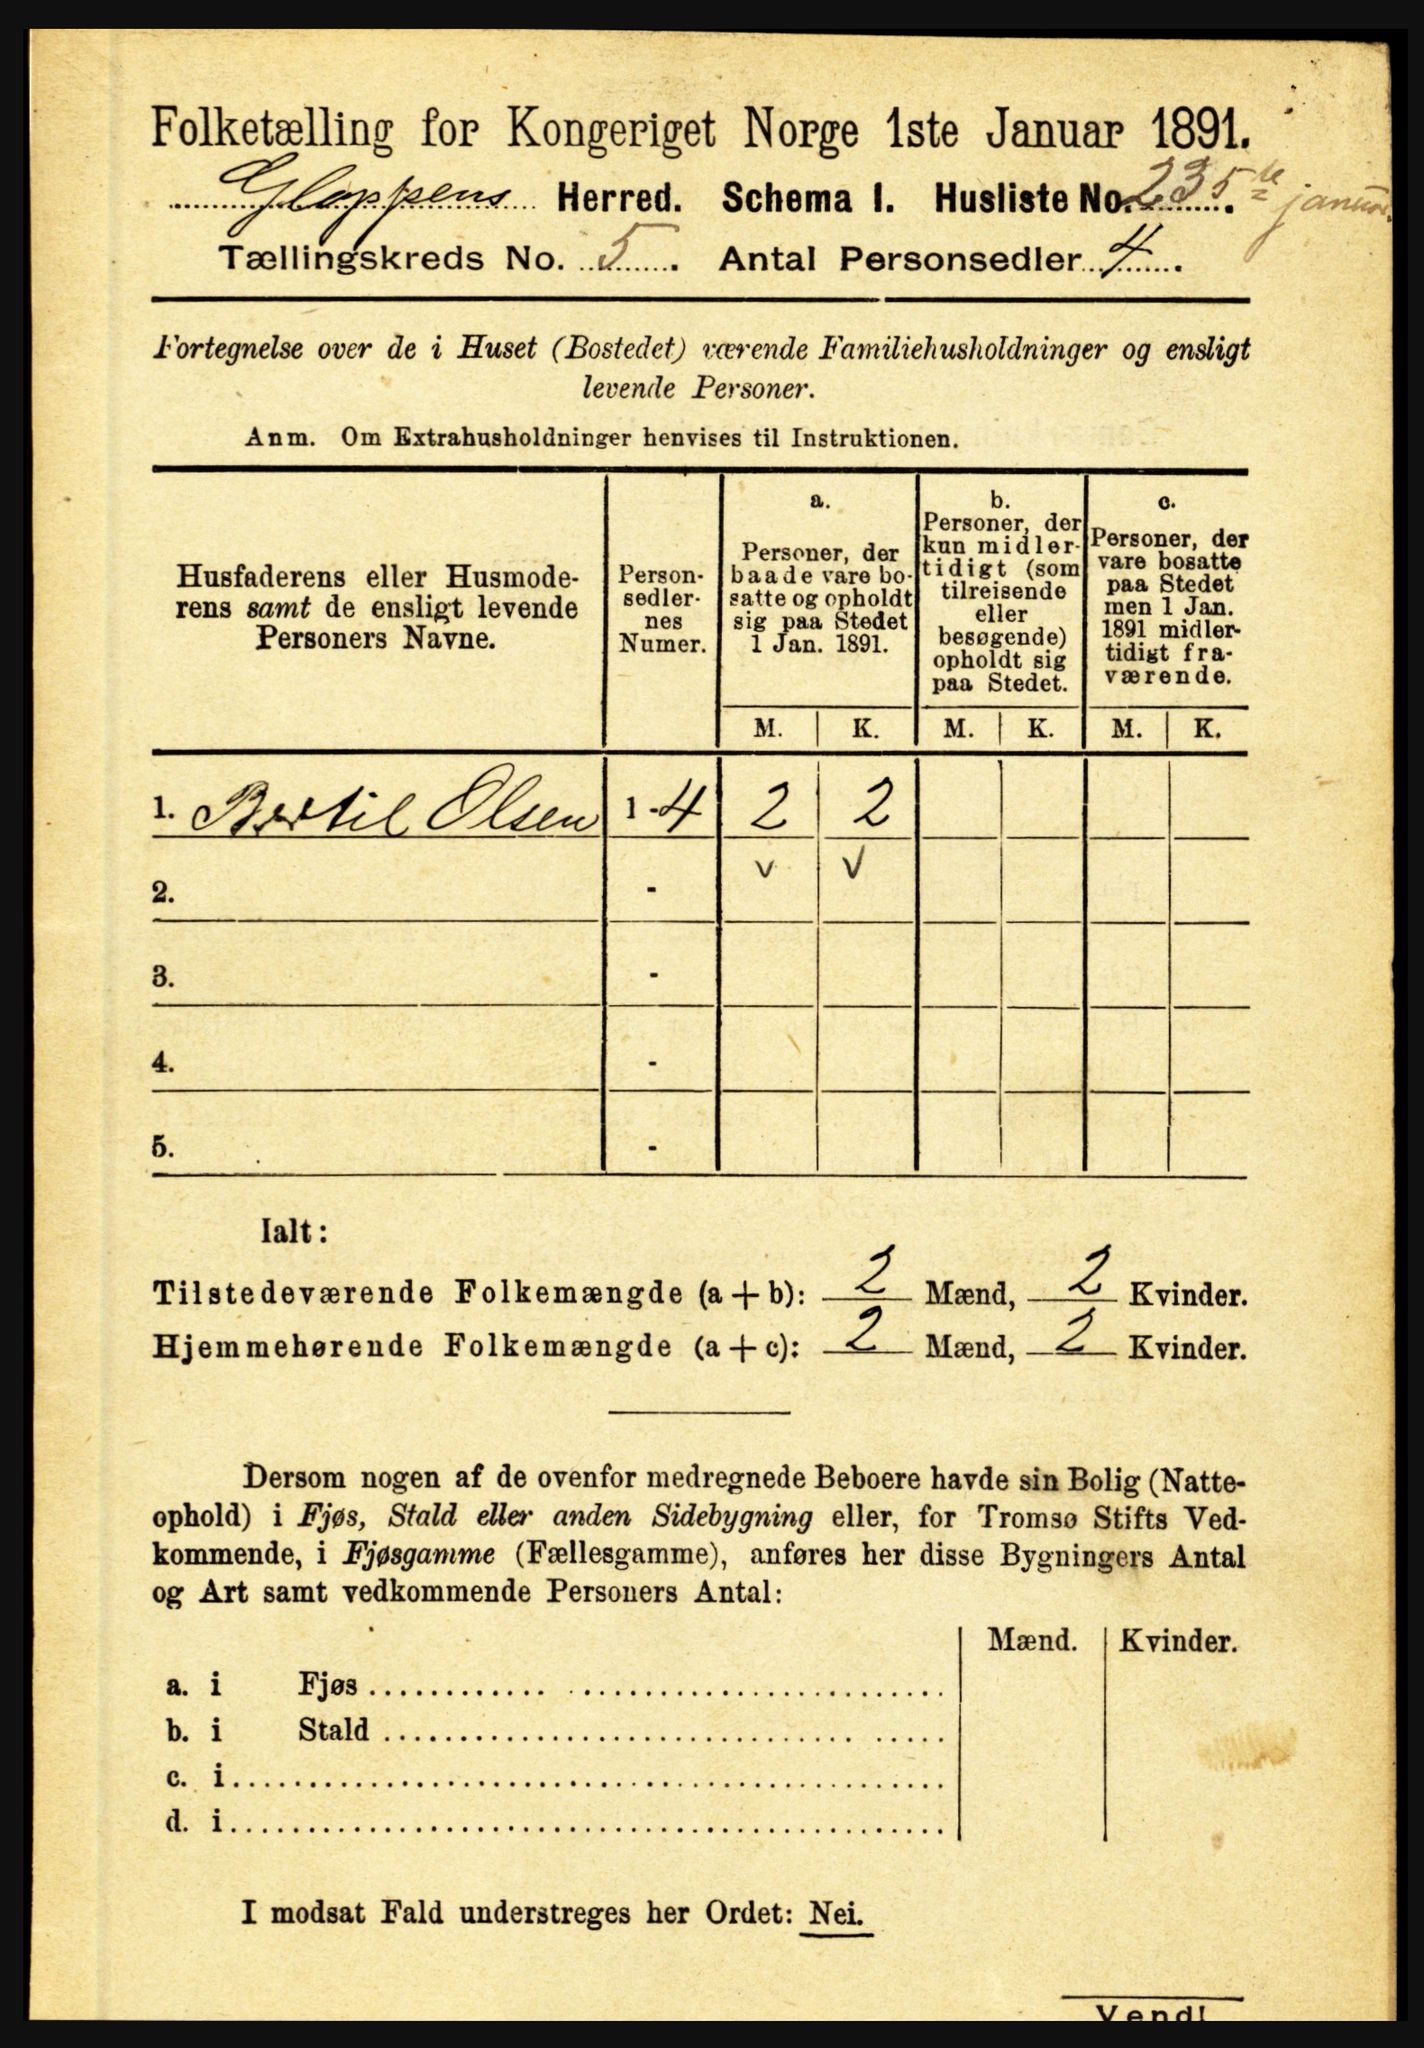 Folketælling for Kongeriget Norge 1ste Januar 1891.
Gloppens Herred. Schema I. Husliste No. 235 te januar
Tællingskreds No. 5. Antal Personsedler 4.
Fortegnelse over de i Huset (Bostedet) værende Familiehusholdninger og ensligt
levende Personer.
Anm. Om Extrahusholdninger henvises til Instruktionen.
Husfaderens eller Husmode-
rens samt de ensligt levende
Personers Navne.
Person-
sedler-
nes
Numer.
a.
Personer, der
baade vare bo-
satte og opholdt
sig paa Stedet
1 Jan. 1891.
b.
Personer, der
kun midler-
tidigt (som
tilreisende
eller
besøgende)
opholdt sig
paa Stedet.
c.
Personer, der
vare bosatte
paa Stedet
men 1 Jan.
1891 midler-
tidigt fra-
værende.
M. K. M. K. M. K.
1. Bertil Olsen 1 - 4 2 2
v v
2. -
3. -
4. -
5. -
Ialt:
Tilstedeværende Folkemængde (a + b): 2 Mænd, 2 Kvinder.
Hjemmehørende Folkemængde (a + c): 2 Mænd, 2 Kvinder.
Dersom nogen af de ovenfor medregnede Beboere havde sin Bolig (Natte-
ophold) i Fjøs, Stald eller anden Sidebygning eller, for Tromsø Stifts Ved-
kommende, i Fjøsgamme (Fællesgamme), anføres her disse Bygningers Antal
og Art samt vedkommende Personers Antal:
Mænd. Kvinder.
a. i Fjøs
b. i Stald
c. i
d. i
I modsat Fald understreges her Ordet: Nei.
Vend!